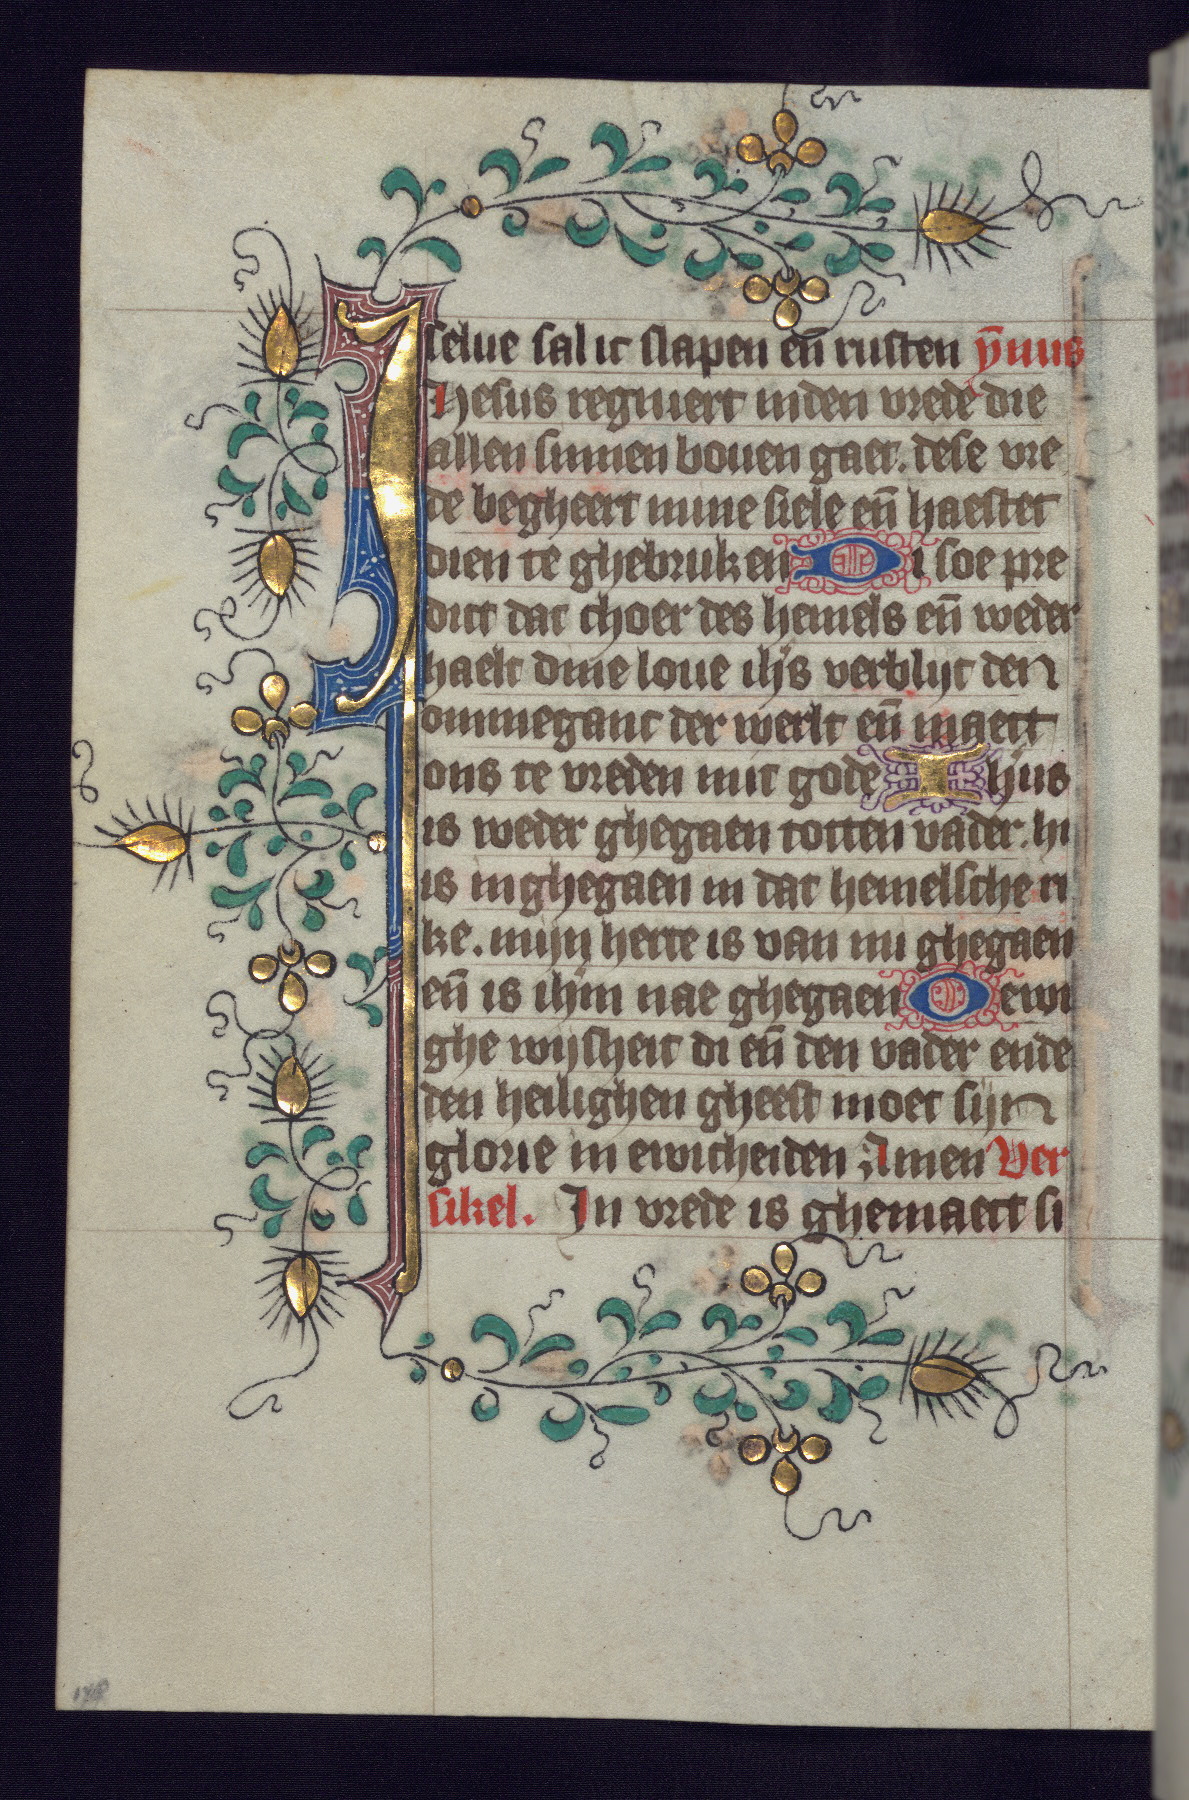 selue sal ic slapen en̄ rusten ȳnus
Ihesus regniert inden vrede die
allen sinnen bouen gaet. dese vre
de begheert mine siele en̄ haestet
dien te ghebruken Di soe pre
dict dat choer des hemels en̄ weder
haelt dine loue ihs verblijt den
ommeganc der werlt en̄ maect
ons te vreden mit gode Ihūs
is weder ghegaen totten vader. hi
is inghegaen in dat hemelsche ri
ke. mijn herte is van mi ghegaen
en̄ is ihm nae ghegaen O ewi
ghe wijsheit di en̄ den vader ende
den heilighen gheest moet sijn
glorie in ewicheiden Amen Ver
sikel. In vrede is ghemaect si